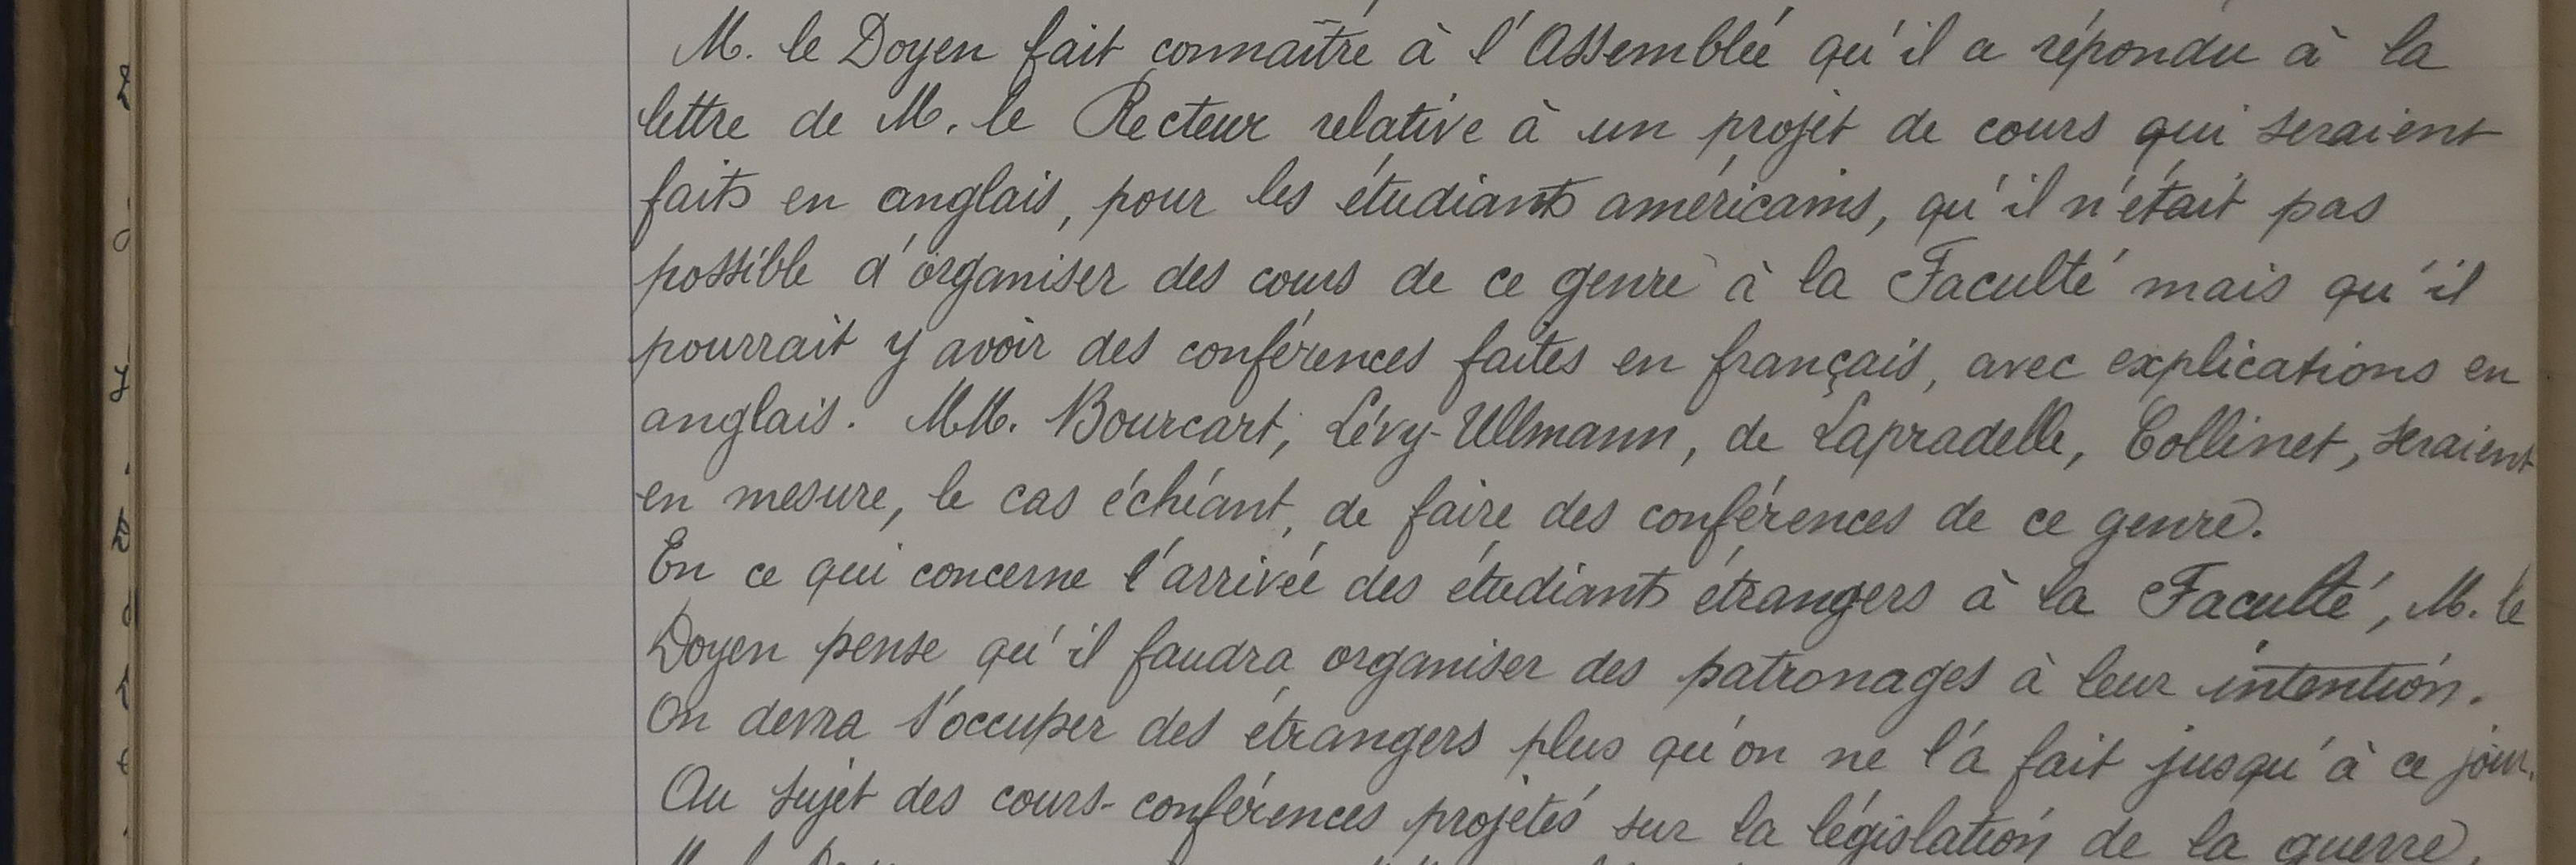 M. le Doyen fait connaître à l'Assemblée qu'il a répondu à la
lettre de M. le Recteur relative à un projet de cours qui seraient
faits en anglais, pour les étudiants américains, qu'il n'était pas
possible d'organiser des cours de ce genre à la Faculté mais qu'il
pourrait y avoir des conférences faites en français, avec explications en
anglais. MM. Bourcart, Lévy-Ullmann, de Lapradelle, Collinet, seraient
en mesure, le cas échéant, de faire des conférences de ce genre.
En ce qui concerne l'arrivée des étudiants étrangers à la Faculté, M. le
Doyen pense qu'il faudra organiser des patronages à leur intention.
On devra s'occuper des étrangers plus qu'on ne l'a fait jusqu'à ce jour.
Au sujet des cours-conférences projetés sur la législation de la guerre,